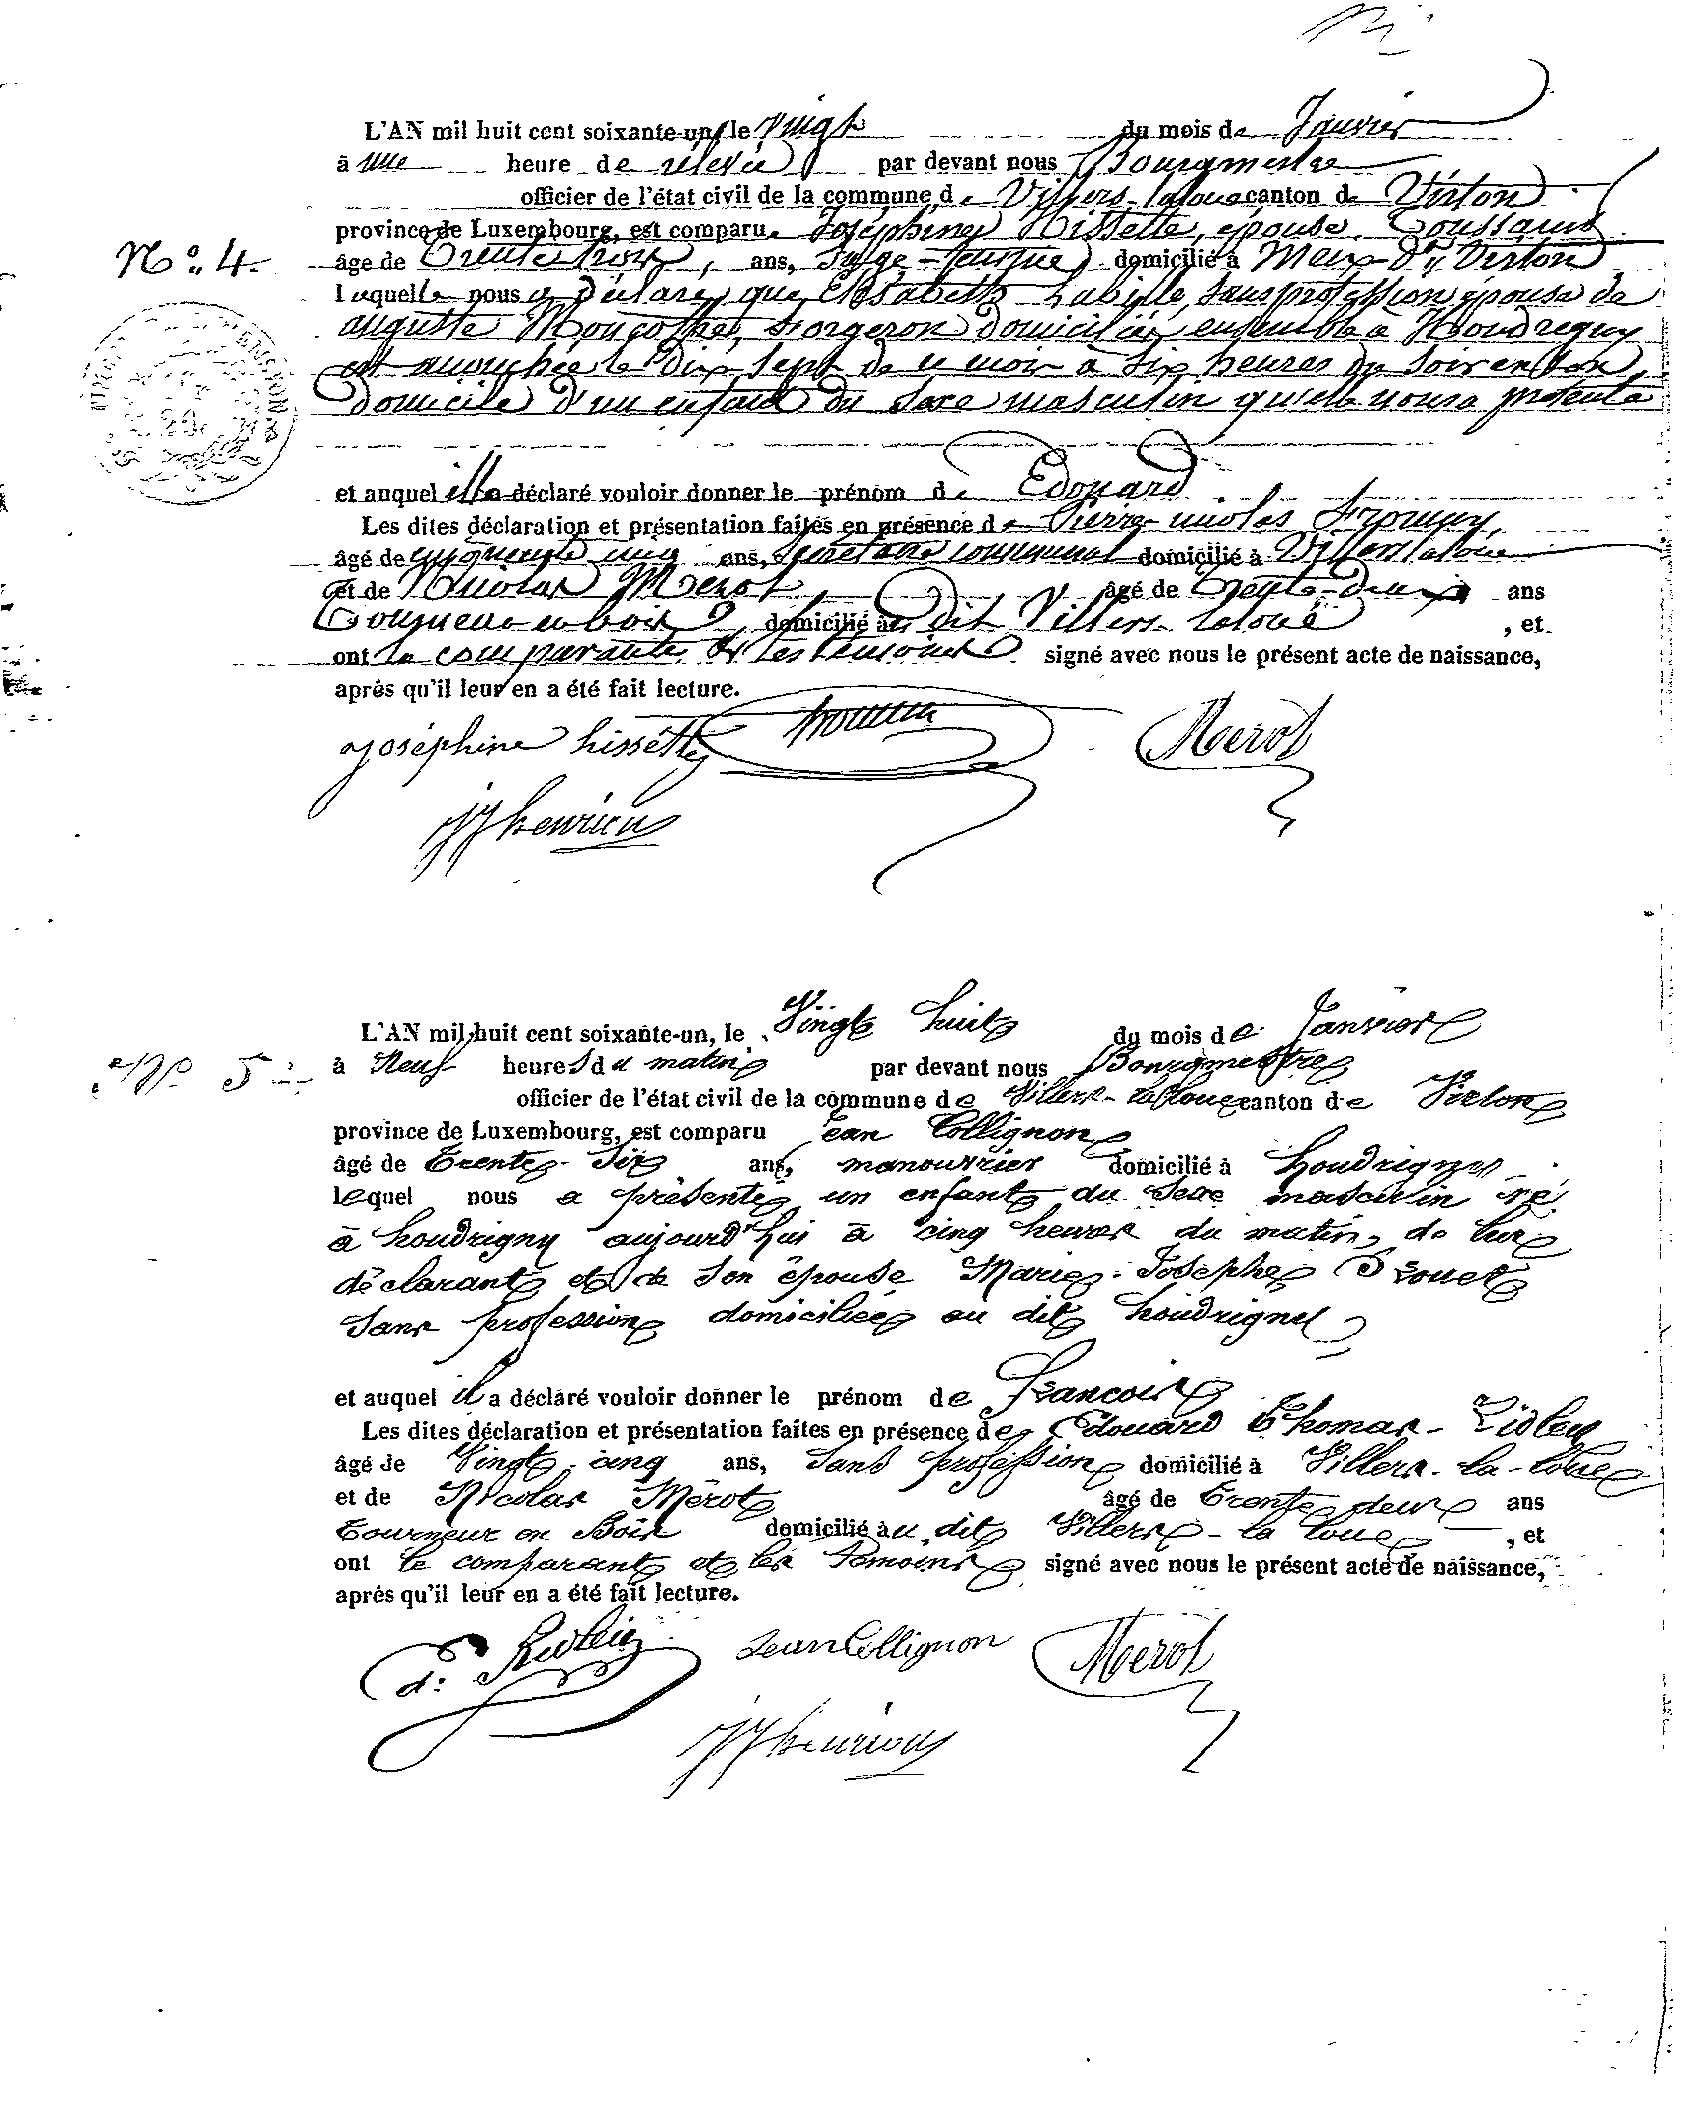 L'AN mil huit cent soixante-un, le Vingt du mois de Janvier
à une heure de relevée par devant nous Bourgmestre
officier de l'état civil de la commune de Villers-laloue canton de Virton
province de Luxembourg, est comparue Joséphine Hissette, épouse Toussaint
N° 4.
âge de Trente trois, ans, Sage-femme domicilié à Meix-dt Virton
laquelle nous a déclaré que Elisabeth Labille, sans profession épouse de
auguste domiciliés ensemble à Houdrigny
est accouchée le dix sept de ce mois à six heures du soir en son
domicile d'un enfant du sexe masculin qu'elle nous a présenté
et auquel elle a déclaré vouloir donner le prénom de Edouard.
Les dites déclaration et présentation faites en présence de Pierre nicolas
âgé de cinquante cinq ans, Secrétaire communal domicilié à Villers laloue
et de Nicolas Merot, âgé de Trente-deux ans
Tourneur en bois, domicilié au dit Villers laloue , et
ont la comparante et les témoins signé avec nous le présent acte de naissance,
après qu'il leur en a été fait lecture.
joséphine hissette Merot
JJ henrion
L'AN mil huit cent soixante-un, le Vingt huit du mois de Janvier
N° 5
à Neuf heures du matin par devant nous Bourgmestre
officier de l'état civil de la commune de Villers-la-loue canton de Virton
province de Luxembourg, est comparu Jean Collignon
âgé de Trente-Six ans, manouvrier domicilié à houdrigny
lequel nous a présenté un enfant du Sexe masculin né
à houdrigny aujourd'hui à cinq heures du matin, de lui
déclarant et de Son épouse Marie-Josephe
Sans profession domiciliée au dit houdrigny
et auquel il a déclaré vouloir donner le prénom de Francois
Les dites déclaration et présentation faites en présence de Edouard Thomas-
âgé de Vingt-cinq ans, Sans profession domicilié à Villers-la-loue
et de Nicolas Mérot âgé de Trente deux ans
Tourneur en Bois domicilié au dit Villers-la loue , et
ont le comparant et les témoins signé avec nous le présent acte de naissance,
après qu'il leur en a été fait lecture.
Jean Collignon Merot
JJ henrion